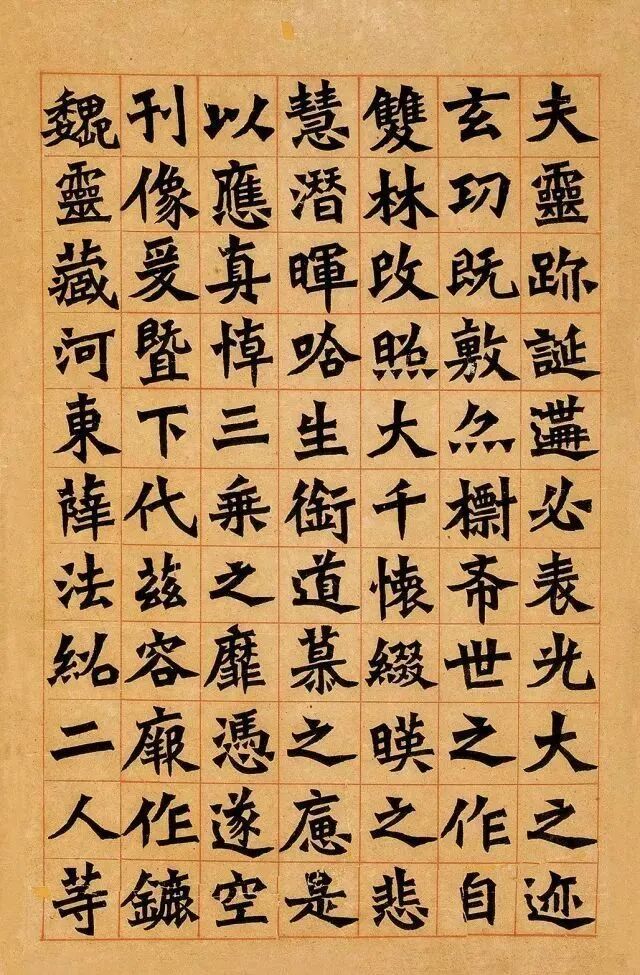 夫靈跡誕遘必表光大之迹
玄功既敷亦標希世之作自
雙林改照大千懐綴暎之悲
慧潛暉啥生銜道慕之癋是
以應真悼三乘之靡憑遂空
刊像爰暨下代茲容厰作鑣
魏靈藏河東薛法紹二人等